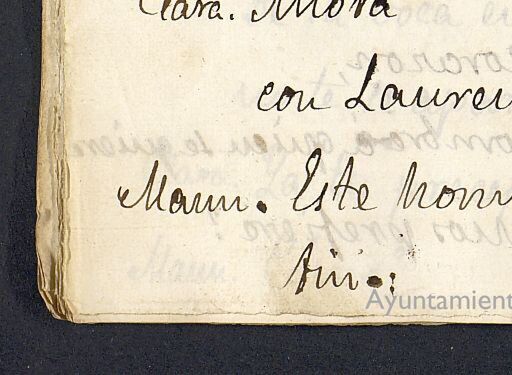 Clara. Mora
con Lauren
Maun. Este hom
Ayuntamient